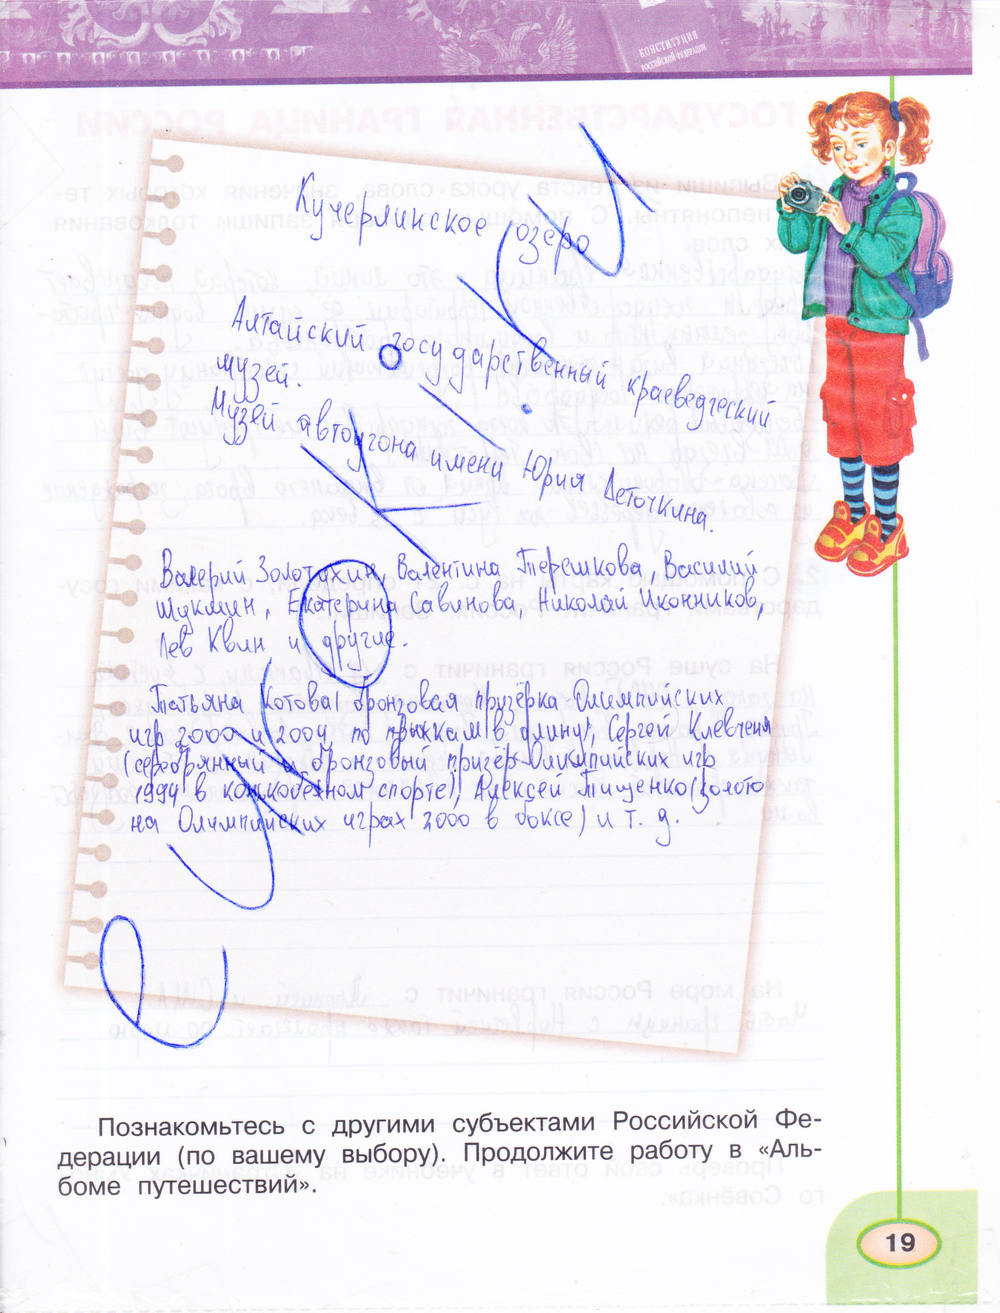 КОНСТИТУЦИЯ
РОССИЙСКОЙ ФЕДЕРАЦИИ
Кучерлинское озеро
Алтайский государственный краеведческий
музей.
Музей автоугона имени Юрия Деточкина.
Валерий Золотухин, Валентина Терешкова, Василий
Шукшин, Екатерина Савинова, Николай Иконников,
Лев Квин и другие.
Татьяна Котова( бронзовая призёрка Олимпийских
игр 2000 и 2004 по прыжкам в длину), Сергей Клевченя
(серебрянный и бронзовый призёр Олимпийских игр
1994 в конкобежном спорте), Алексей Тищенко(золото
на Олимпийских играх 2000 в боксе) и т. д.
е уроки.ги
Познакомьтесь с другими субъектами Российской Фе-
дерации (по вашему выбору). Продолжите работу в «Аль-
боме путешествий».
19